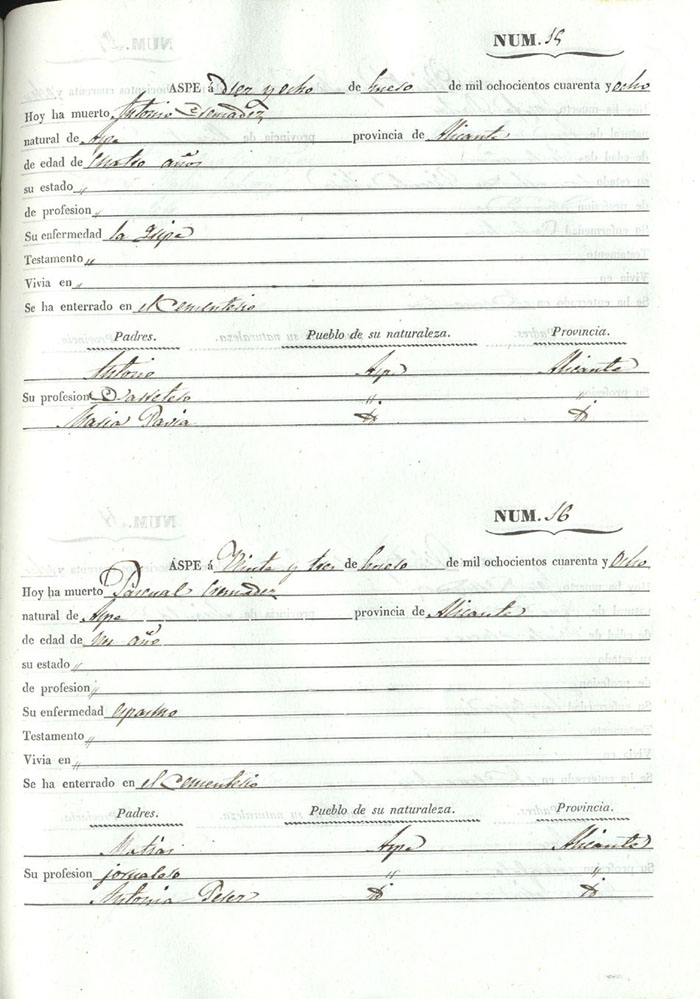 NUM. 15
ASPE á Diez y ocho de Enero de mil ochocientos cuarenta y ocho
Hoy ha muerto Antonio Cremadez
natural de Aspe provincia de Alicante
de edad de cuatro años
su estado "
de profesion "
Su enfermedad la Gripe
Testamento "
Vivia en "
Se ha enterrado en el Cementerio
Padres. Pueblo de su naturaleza. Provincia.
Antonio Aspe Alicante
Su profesion Carretero " "
Maria Pavia
NUM. 16
ASPE á Veinte y tres de Enero de mil ochocientos cuarenta y Ocho
Hoy ha muerto Pascual Cremadez
natural de Aspe provincia de Alicante
de edad de un año
su estado "
de profesion "
Su enfermedad espasmo
Testamento "
Vivia en "
Se ha enterrado en el Cementerio
Padres. Pueblo de su naturaleza. Provincia.
Matias Aspe Alicante
Su profesion jornalero " "
Antonia Perez